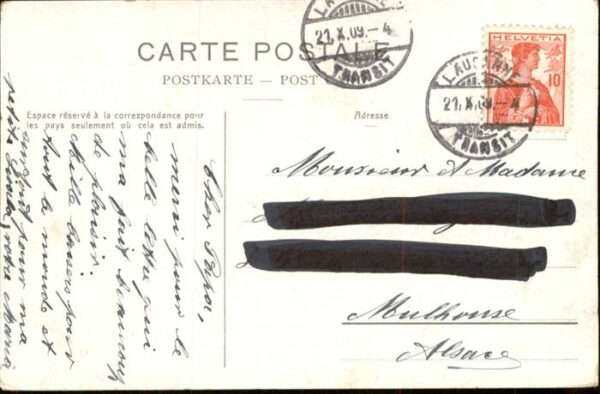 CARTE POSTALE
POSTKARTE – POST
LAUSANNE
21.X.09.–4
TRANSIT
LAUSANNE
21.X.09.–4
TRANSIT
HELVETIA
10
Espace réservé à la correspondance pour
les pays seulement où cela est admis.
Adresse
Cher Papa,
merci pour la
belle lettre qui
m'a fait beaucoup
de plaisir.
Mille baisers pour
tout le monde et
surtout pour ma
petite Maria
Monsieur et Madame
Mulhouse
Alsace